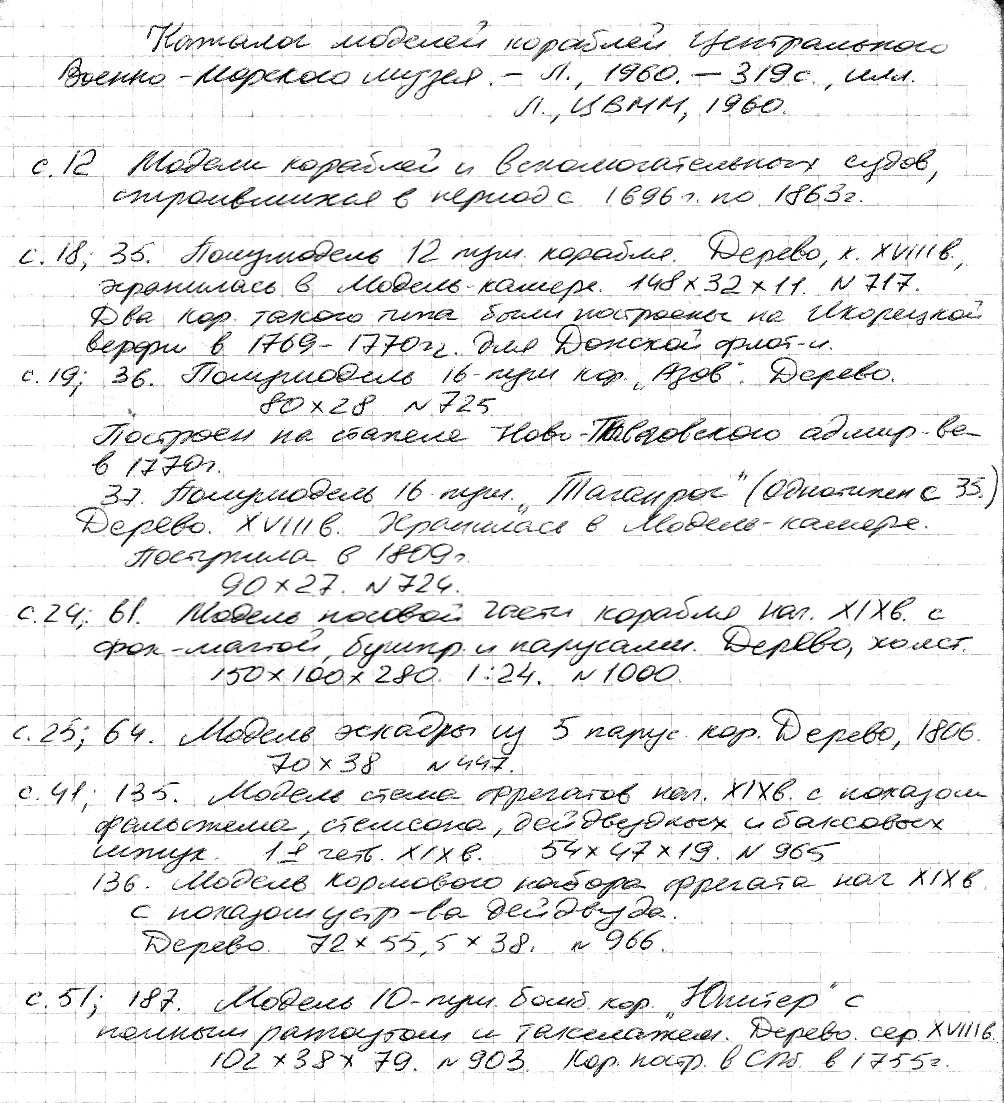 Каталог моделей кораблей Центрального
Военно-Морского музея. – Л., 1960. – 319с., илл.
Л., ЦВММ, 1960.
с.12 Модели кораблей и вспомогательных судов,
строившихся в период с 1696г. по 1863г.
с.18; 35. Полумодель 12 пуш. корабля. Дерево, к. XVIIIв.,
хранилась в Модель-камере. 148×32×11. N 717.
Два кор. такого типа были построены на Икорецкой
верфи в 1769–1770гг. для Донской флот-и.
с.19; 36. Полумодель 16-пуш кор. „Азов". Дерево.
80×28 N 725
Построен на стапеле Ново-Павловского адмир-ва
в 1770г.
37. Полумодель 16 пуш. „Таганрог" (однотипен с 35.)
Дерево. XVIIIв. Хранилась в Модель-камере.
Поступила в 1809г.
90×27. N 724.
с.24; 61. Модель носовой части корабля нач. XIXв. с
фок-мачтой, бушпр. и парусами. Дерево, холст.
150×100×280. 1:24. N 1000.
с.25; 64. Модель эскадры из 5 парус. кор. Дерево, 1806.
70×38 N 447.
с.41; 135. Модель стема фрегатов нач. XIXв. с показом
фальстема, стемсона, дейдвудных и баксовых
штук. 1я четв. XIXв. 54×47×19. N 965
136. Модель кормового набора фрегата нач XIXв.
с показом устр-ва дейдвуда.
Дерево. 72×55,5×38. N 966.
с.51; 187. Модель 10-пуш. бомб. кор. „Юпитер" с
полным рангоутом и такелажем. Дерево. сер. XVIIIв.
102×38×79. N 903. Кор. постр. в СПб. в 1755г.